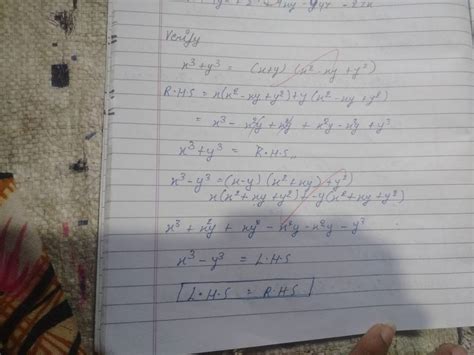 Verify
x³+y³ = (x+y) (x² - xy + y²)
R.H.S = x(x² - xy + y²) + y(x² - xy + y²)
= x³ - x²y + xy² + x²y - xy² + y³
x³+y³ = R.H.S,,
x³-y³ = (x-y) (x²+xy)+y²)
x(x²+xy+y²) - y(x²+xy+y²)
x³ + x²y + xy² - x²y - x²y - y³
x³-y³ = L.H.S
[L.H.S = R.H.S]